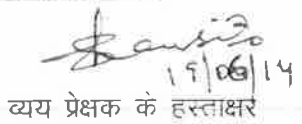 19/06/14
व्यय प्रेक्षक के हस्ताक्षर